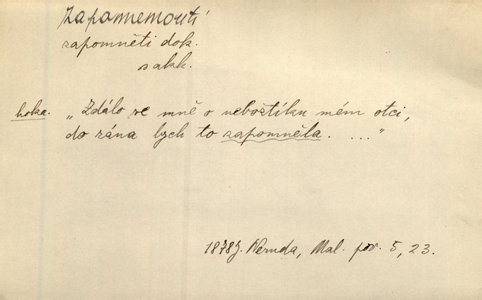 zapamnemouti
zapomněti dok.
s akk.
hoka. „Zdálo se mně o nebožtíku mém otci,
do rána bych to zapomněla. ...."
1878 J. Neruda, Mal. pov. 5, 23.